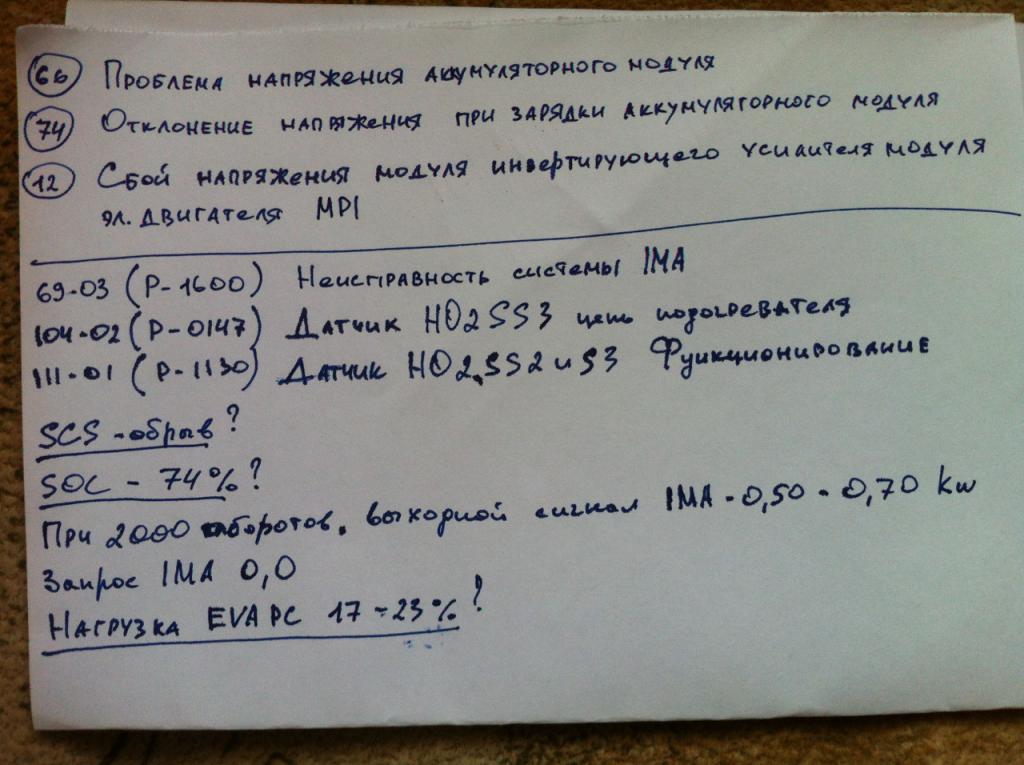 66 Проблема напряжения аккумуляторного модуля
74 Отклонение напряжения при зарядки аккумуляторного модуля
12 Сбой напряжения модуля инвертирующего усилителя модуля
эл. двигателя MPI
69-03 (P-1600) Неисправность системы IMA
104-02 (P-0147) Датчик HO2SS3 цепь подогревателя
111-01 (P-1130) Датчик HO2.SS2 и S3 Функционирование
SCS - обрыв ?
SOC - 74% ?
При 2000 оборотов. выходной сигнал IMA - 0,50 - 0,70 kw
Запрос IMA 0,0
Нагрузка EVAPC 17-23% ?